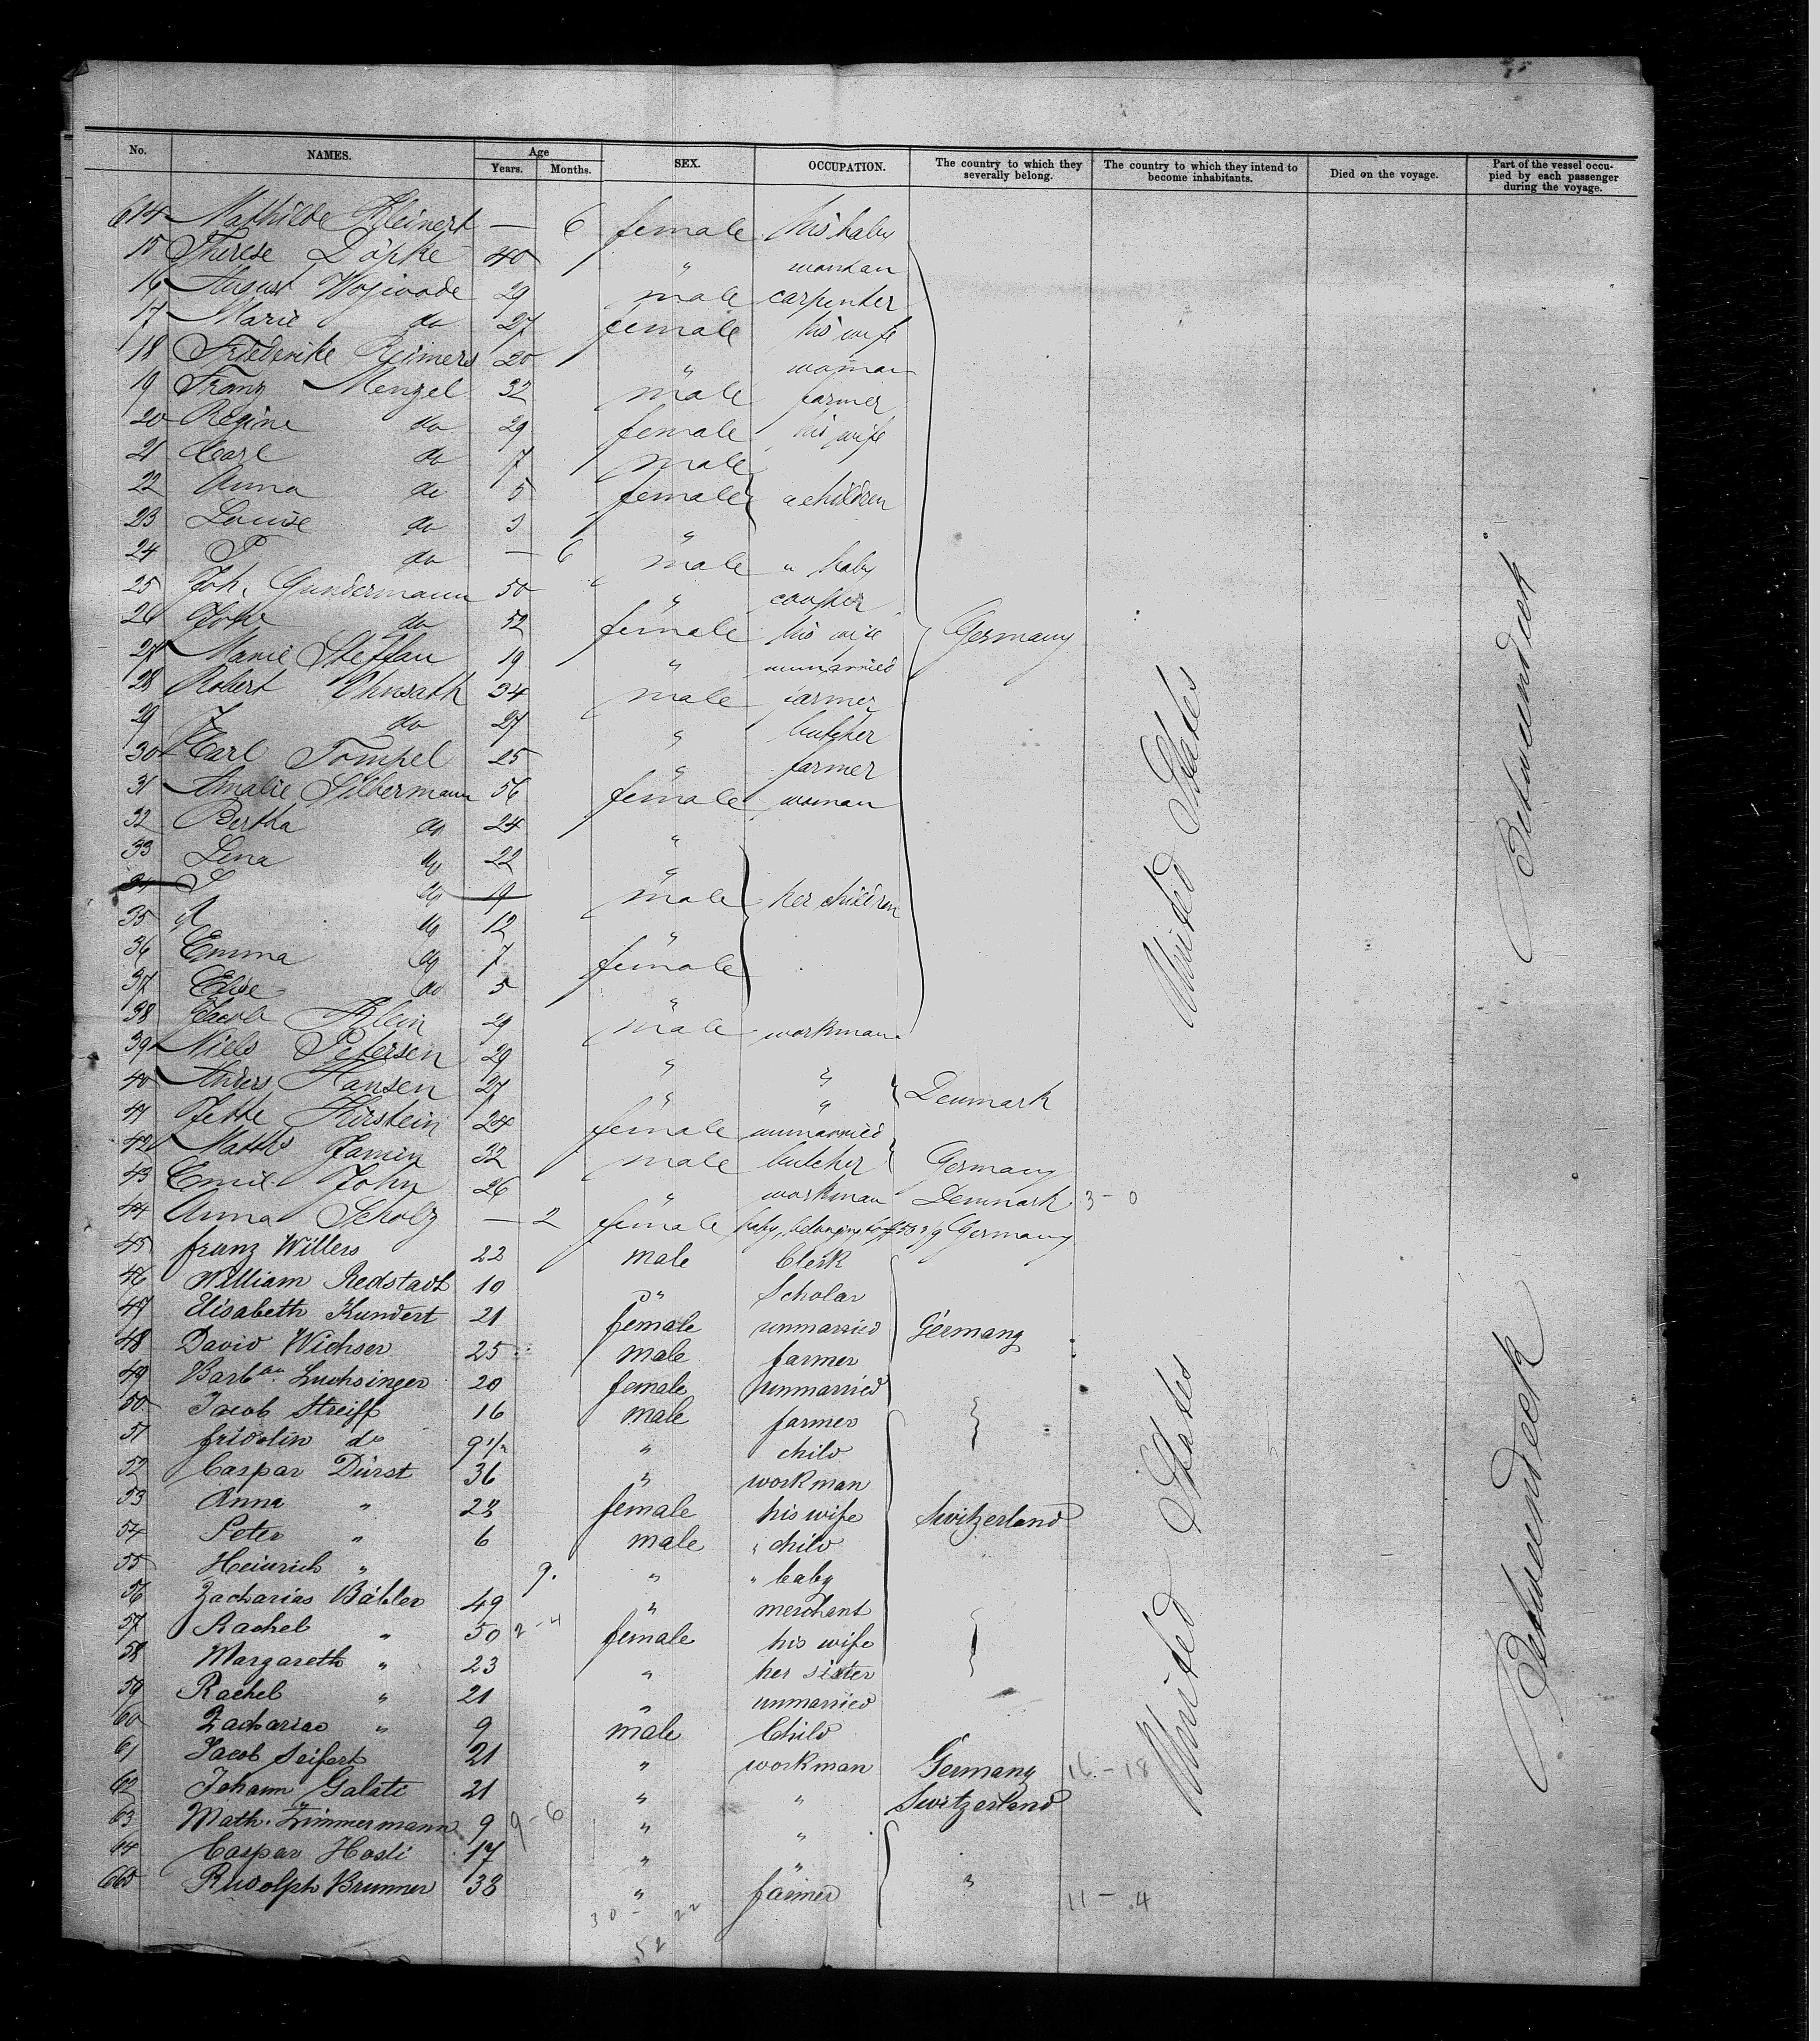 No. NAMES. Age Years. Months. SEX. OCCUPATION. The country to which they severally belong. The country to which they intend to become inhabitants. Died on the voyage. Part of the vessel occupied by each passenger during the voyage.
614 Mathilde Kleinert — 6 female his baby
15 Therese Döpke 40 " woman
16 August Wojwode 29 male carpenter
17 Marie do 27 female his wife
18 Friederike Reimers 20 " woman
19 Franz Menzel 32 male farmer
20 Regine do 29 female his wife
21 Carl do 7 male
22 Anna do 5 female " children
23 Louise do 3 "
24 do — 6 male " baby
25 Joh. Gundermann 50 " cooper
26 do 52 female his wife Germany
27 Marie Steffan 19 " unmarried
28 Robert 34 male farmer
29 do 27 " butcher
30 Carl Tompel 25 " farmer
31 Amalie Silbermann 56 female woman
32 Bertha do 24 "
33 Lena do 22 "
34 S do 19 male her children
35 A do 12 "
36 Emma do 7 female
37 Else do 5 "
38 Jacob Klein 29 male workman
39 Niels Petersen 29 " "
40 Anders Hansen 27 " " Denmark
41 Jette Kirstein 24 female unmarried
42 Maths Jamin 32 male butcher Germany
43 Emil John 26 " workman Denmark 3 - 0
44 Anna Scholz — 2 female baby, belonging to Germany
45 Franz Willers 22 male Clerk
46 William Redstadt 19 " Scholar
47 Elisabeth Kundert 21 female unmarried Germany
48 David Wichser 25 male farmer
49 Barbara Luchsinger 20 female unmarried
50 Jacob Streiff 16 male farmer
51 Fridolin do 9 1/2 " child
52 Caspar Dürst 36 " workman
53 Anna " 28 female his wife Switzerland
54 Peter " 6 male " child
55 Heinrich " 9. " " baby
56 Zacharias Bäbler 49 " merchant
57 Rachel " 50 2 - 4 female his wife
58 Margareth " 23 " her sister
59 Rachel " 21 " unmarried
60 Zacharias " 9 male Child
61 Jacob Seifert 21 " workman Germany 16 - 18
62 Johann Galati 21 " " Switzerland
63 Math. Zimmermann 9 9 - 6 " "
64 Caspar Hösli 17 " "
665 Rudolph Brunner 38 " farmer " 11 - 4
30 - 22
52
United States
United States
Betweendeck
Betweendeck